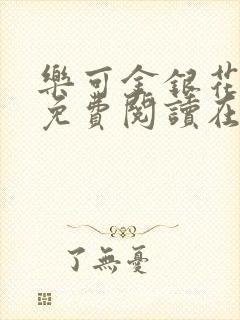 樂可金銀花
免費閱讀在
了無憂